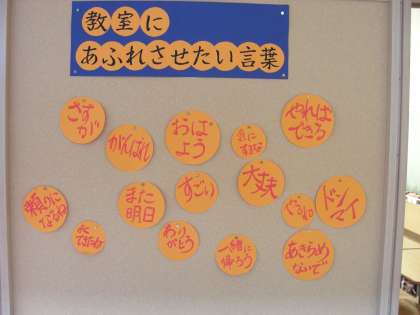 教室に
あふれさせたい言葉
さす
が
がんばれ
おは
よう
気に
するな
やれば
できる
頼りに
なるね
また
明日
すごい
大
丈夫
やるね
ドン
マイ
あり
がとう
一緒に
帰ろう
あきらめ
ないで